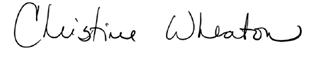 Christine Wheaton